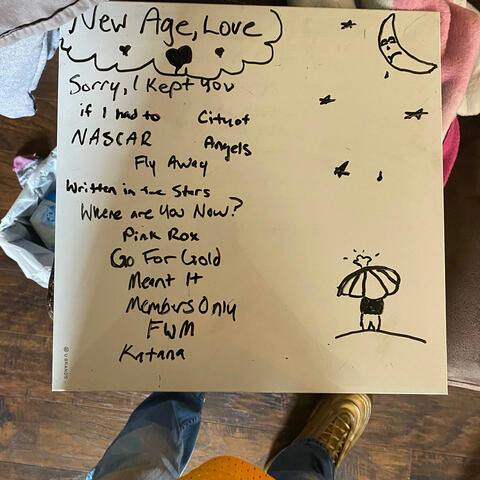 New Age, Love
Sorry, I Kept You
if I had to
City of Angels
NASCAR
Fly Away
Written in the Stars
Where are You Now?
Pink Rox
Go For Gold
Meant It
Members Only
FWM
Katana
U BRANDS